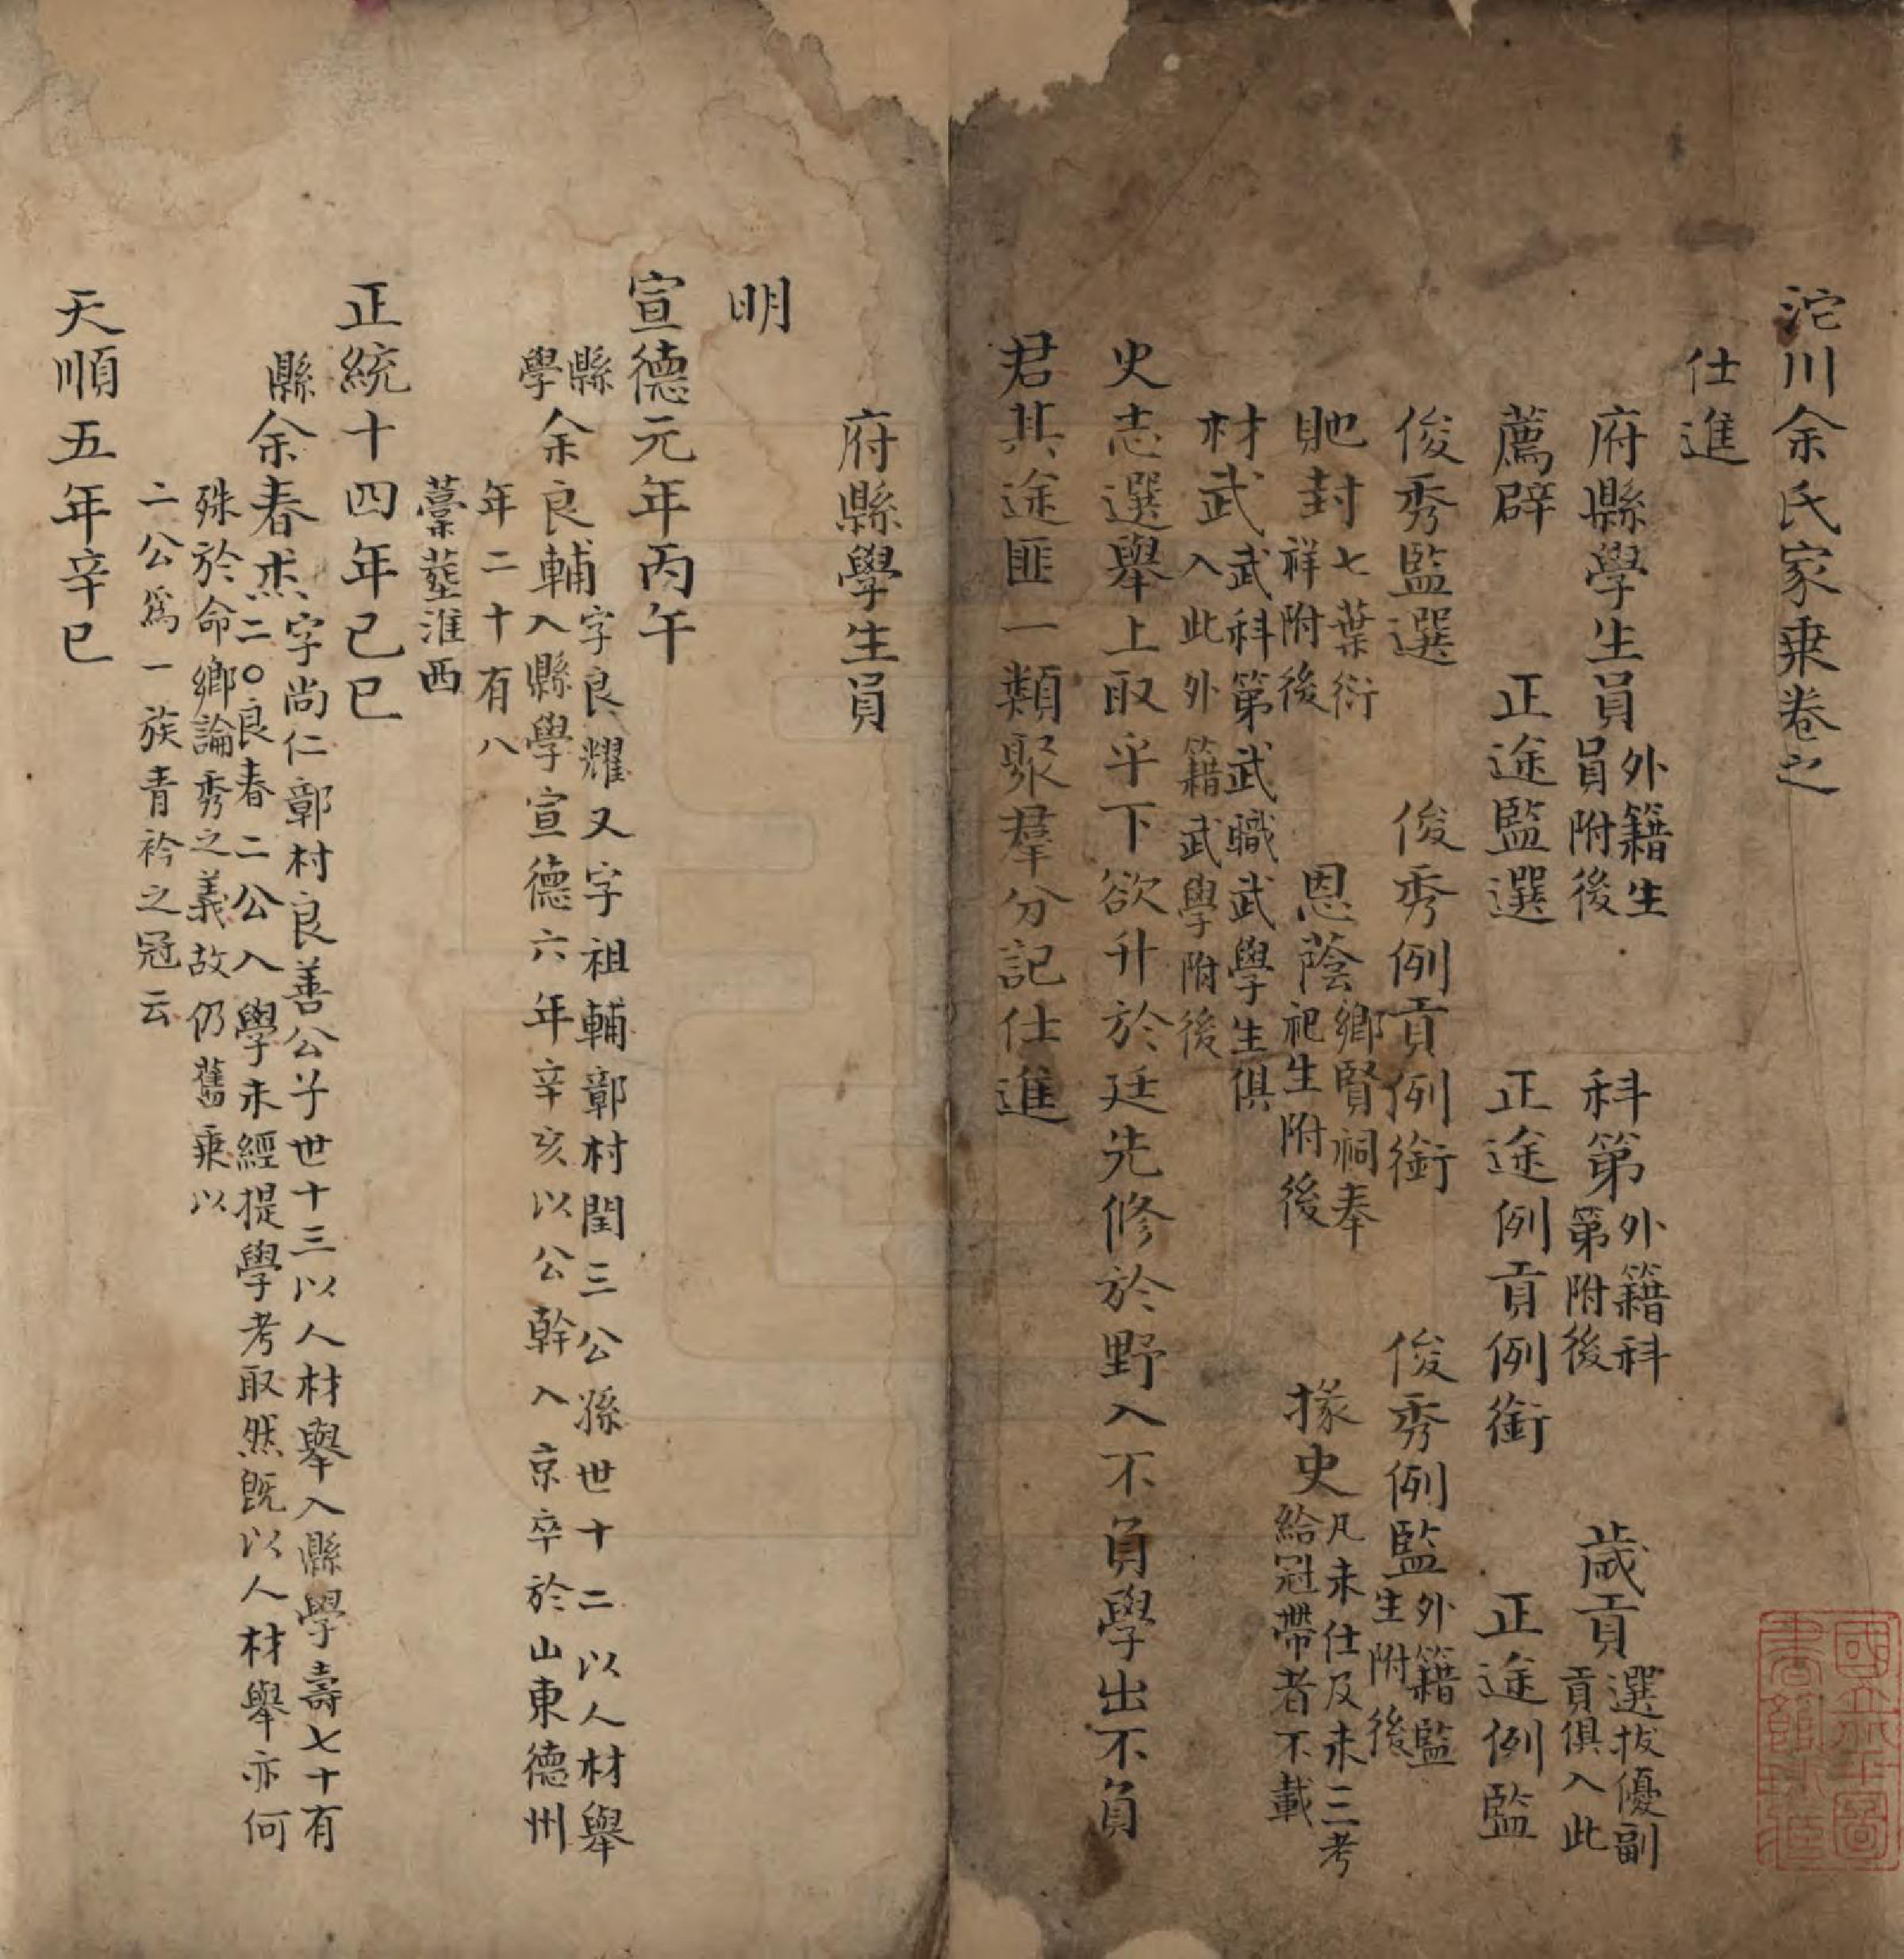 沱川余氏家乘卷之
仕進
府縣學生員外籍生員附後 科第外籍科第附後 歲貢選拔優副貢俱入此
薦辟 正途監選 正途例貢例銜 正途例監
俊秀監選 俊秀例貢例銜 俊秀例監外籍監生附後
貤封七葉衍祥附後 恩蔭鄉賢祠奉祀生附後 掾史凡未仕及未三考給冠帶者不載
材武武科第武職武學生俱入此外籍武學附後
史志選舉上取乎下欲升於廷先修於野入不負學出不負
君其途匪一類聚羣分記仕進
府縣學生員
明
宣德元年丙午
縣學余良輔字良耀又字祖輔鄣村閏三公孫世十二以人材舉
入縣學宣德六年辛亥以公幹入京卒於山東德州
年二十有八
藁塟淮西
正統十四年己巳
縣余春杰字尚仁鄣村良善公子世十三以人材舉入縣學壽七十有
二〇良春二公入學未經提學考取然既以人材舉亦何
殊於命鄉論秀之義故仍舊乘以
二公爲一族青衿之冠云
天順五年辛巳